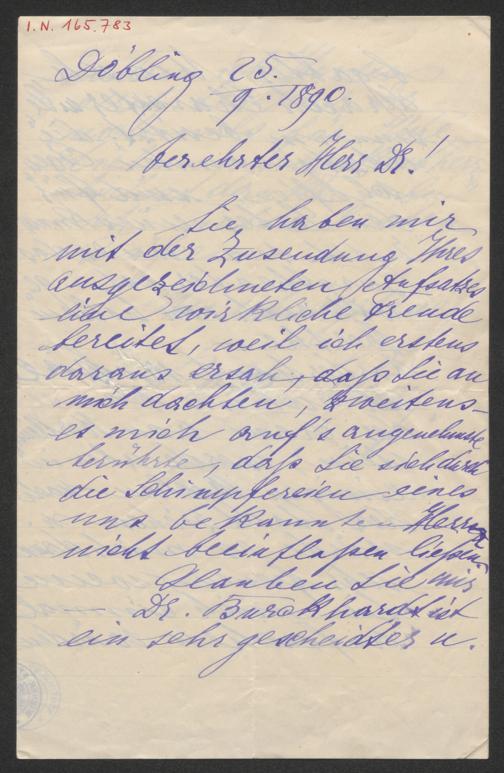 I.N. 165.783
Döbling 25.
9. 1890.
Verehrter Herr Dr!
Sie haben mir
mit der Zusendung Ihres
ausgezeichneten Aufsatzes
eine wirkliche Freude
bereitet, weil ich erstens
daraus ersah, daß Sie an
mich dachten, zweitens
es mich auf's angenehmste
berührte, daß Sie sich durch
die Schimpfereien eines
uns bekannten Herrn
nicht beeinflaßen ließen.
Glauben Sie mir
— Dr. Burckhardt ist
ein sehr gescheidter u.